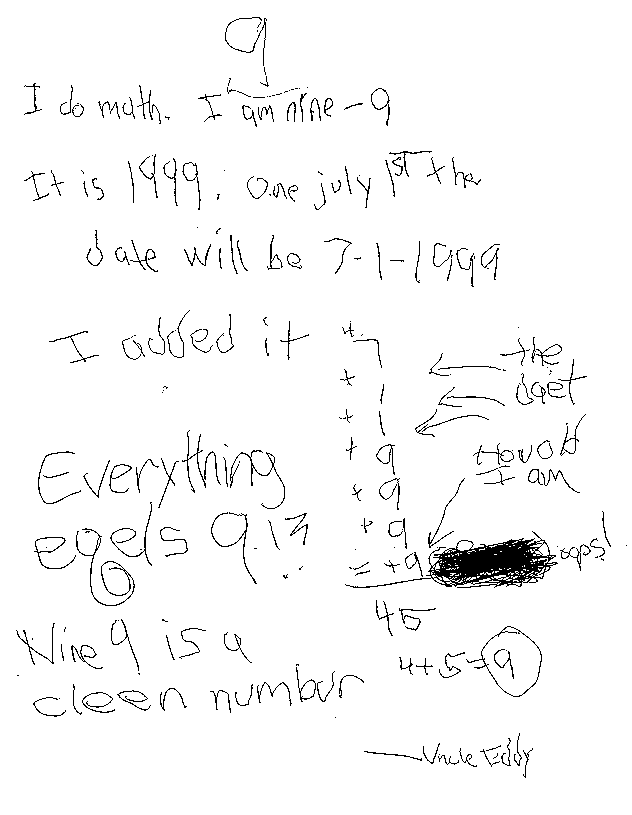 9
I do math. I am nine - 9
It is 1999. One july 1st the
date will be 7-1-1999
I added it
+ 7
+ 1
+ 1
+ 9
+ 9
+ 9
= +9 oops!
45
4+5=9
the
daet
How old
I am
Everything
eqels 9!?
Nine 9 is a
cleen number
— Uncle Eddy